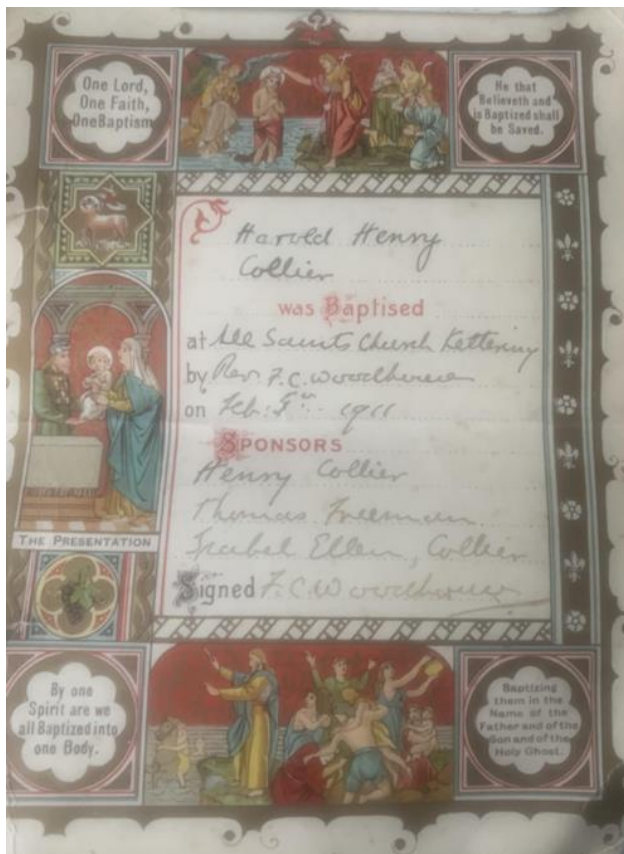 One Lord,
One Faith,
One Baptism
He that
Believeth and
is Baptized shall
be Saved.
Harold Henry
Collier
was Baptised
at All Saints Church Kettering
by Rev. F.C. Woodhouse
on Feb: 1911
SPONSORS
Henry Collier
Thomas Freeman
Isabel Ellen, Collier
Signed F.C. Woodhouse
THE PRESENTATION
By one
Spirit are we
all Baptized into
one Body.
Baptizing
them in the
Name of the
Father and of the
Son and of the
Holy Ghost.